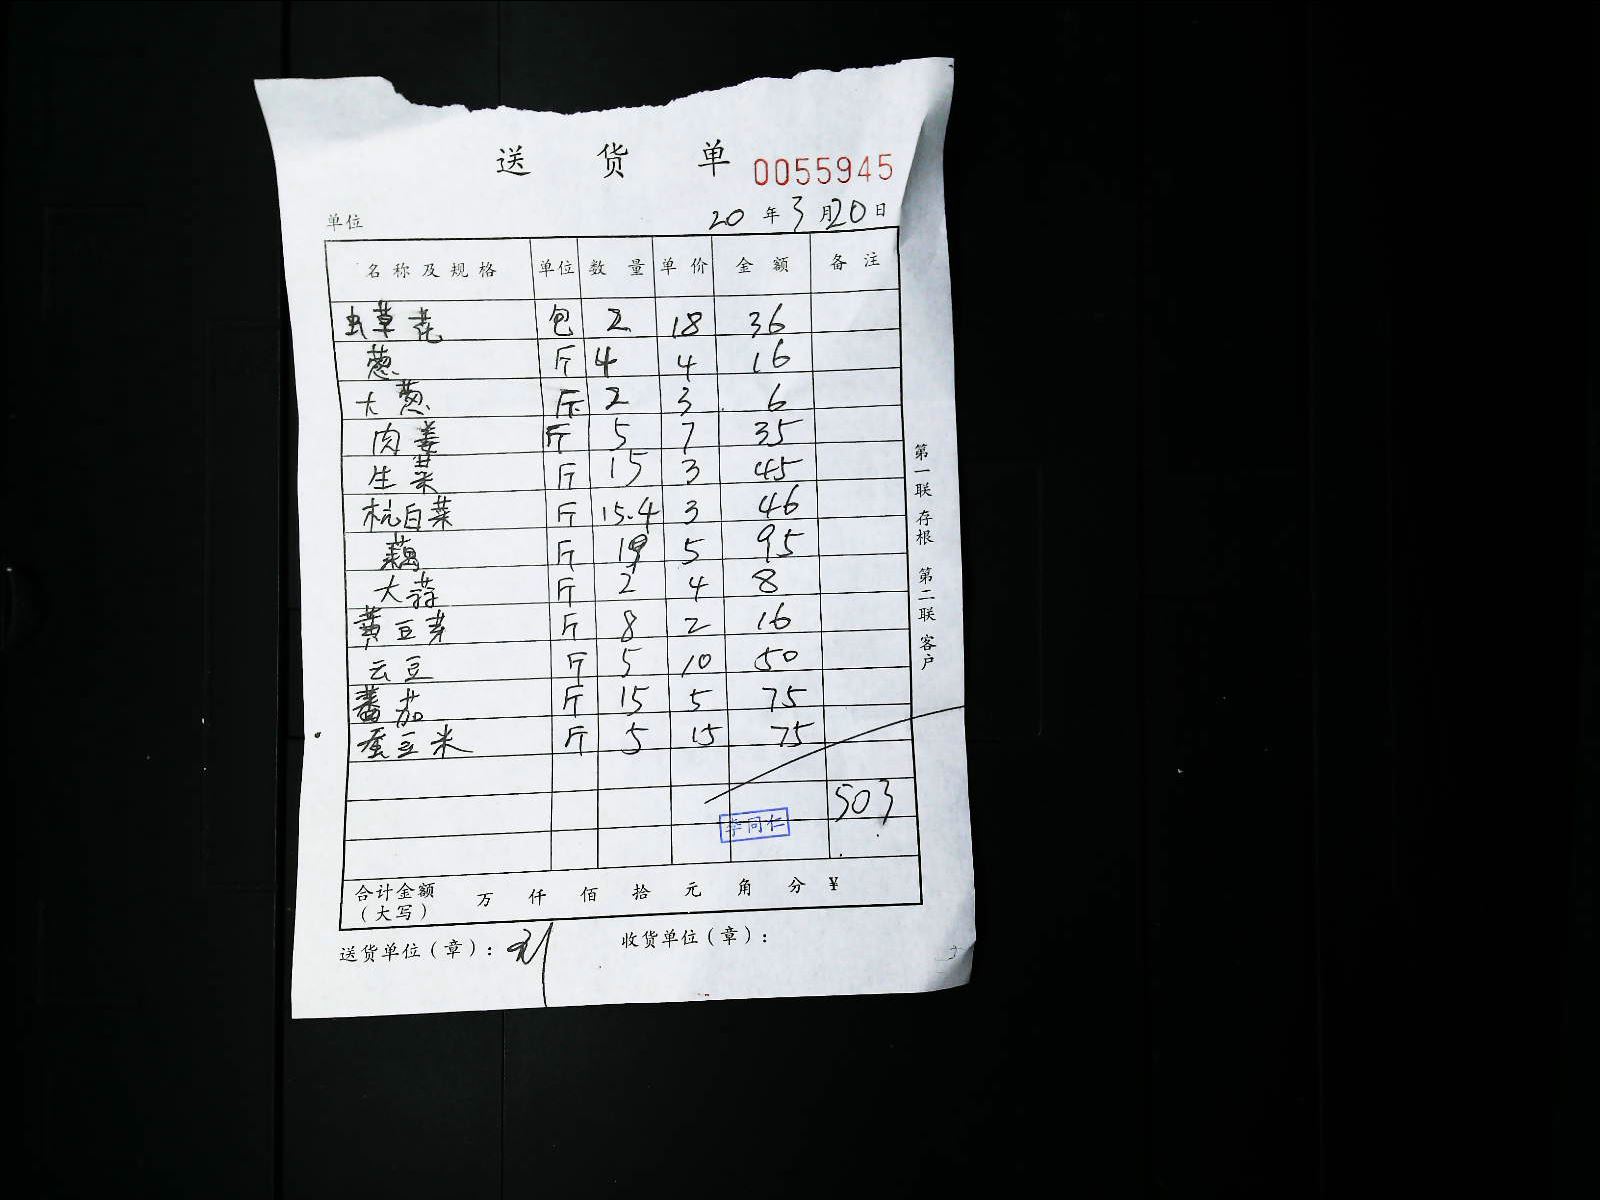 送 货 单 0055945
单位 20 年 3 月 20 日
名称及规格 单位 数量 单价 金额 备注
虫草花 包 2 18 36
葱 斤 4 4 16
大葱 斤 2 3 6
肉姜 斤 5 7 35
生菜 斤 15 3 45
杭白菜 斤 15.4 3 46
藕 斤 19 5 95
大蒜 斤 2 4 8
黄豆芽 斤 8 2 16
云豆 斤 5 10 50
蕃茄 斤 15 5 75
蚕豆米 斤 5 15 75
503
李同仁
合计金额（大写） 万 仟 佰 拾 元 角 分 ¥
送货单位（章）： 收货单位（章）：
第一联 存根 第二联 客户